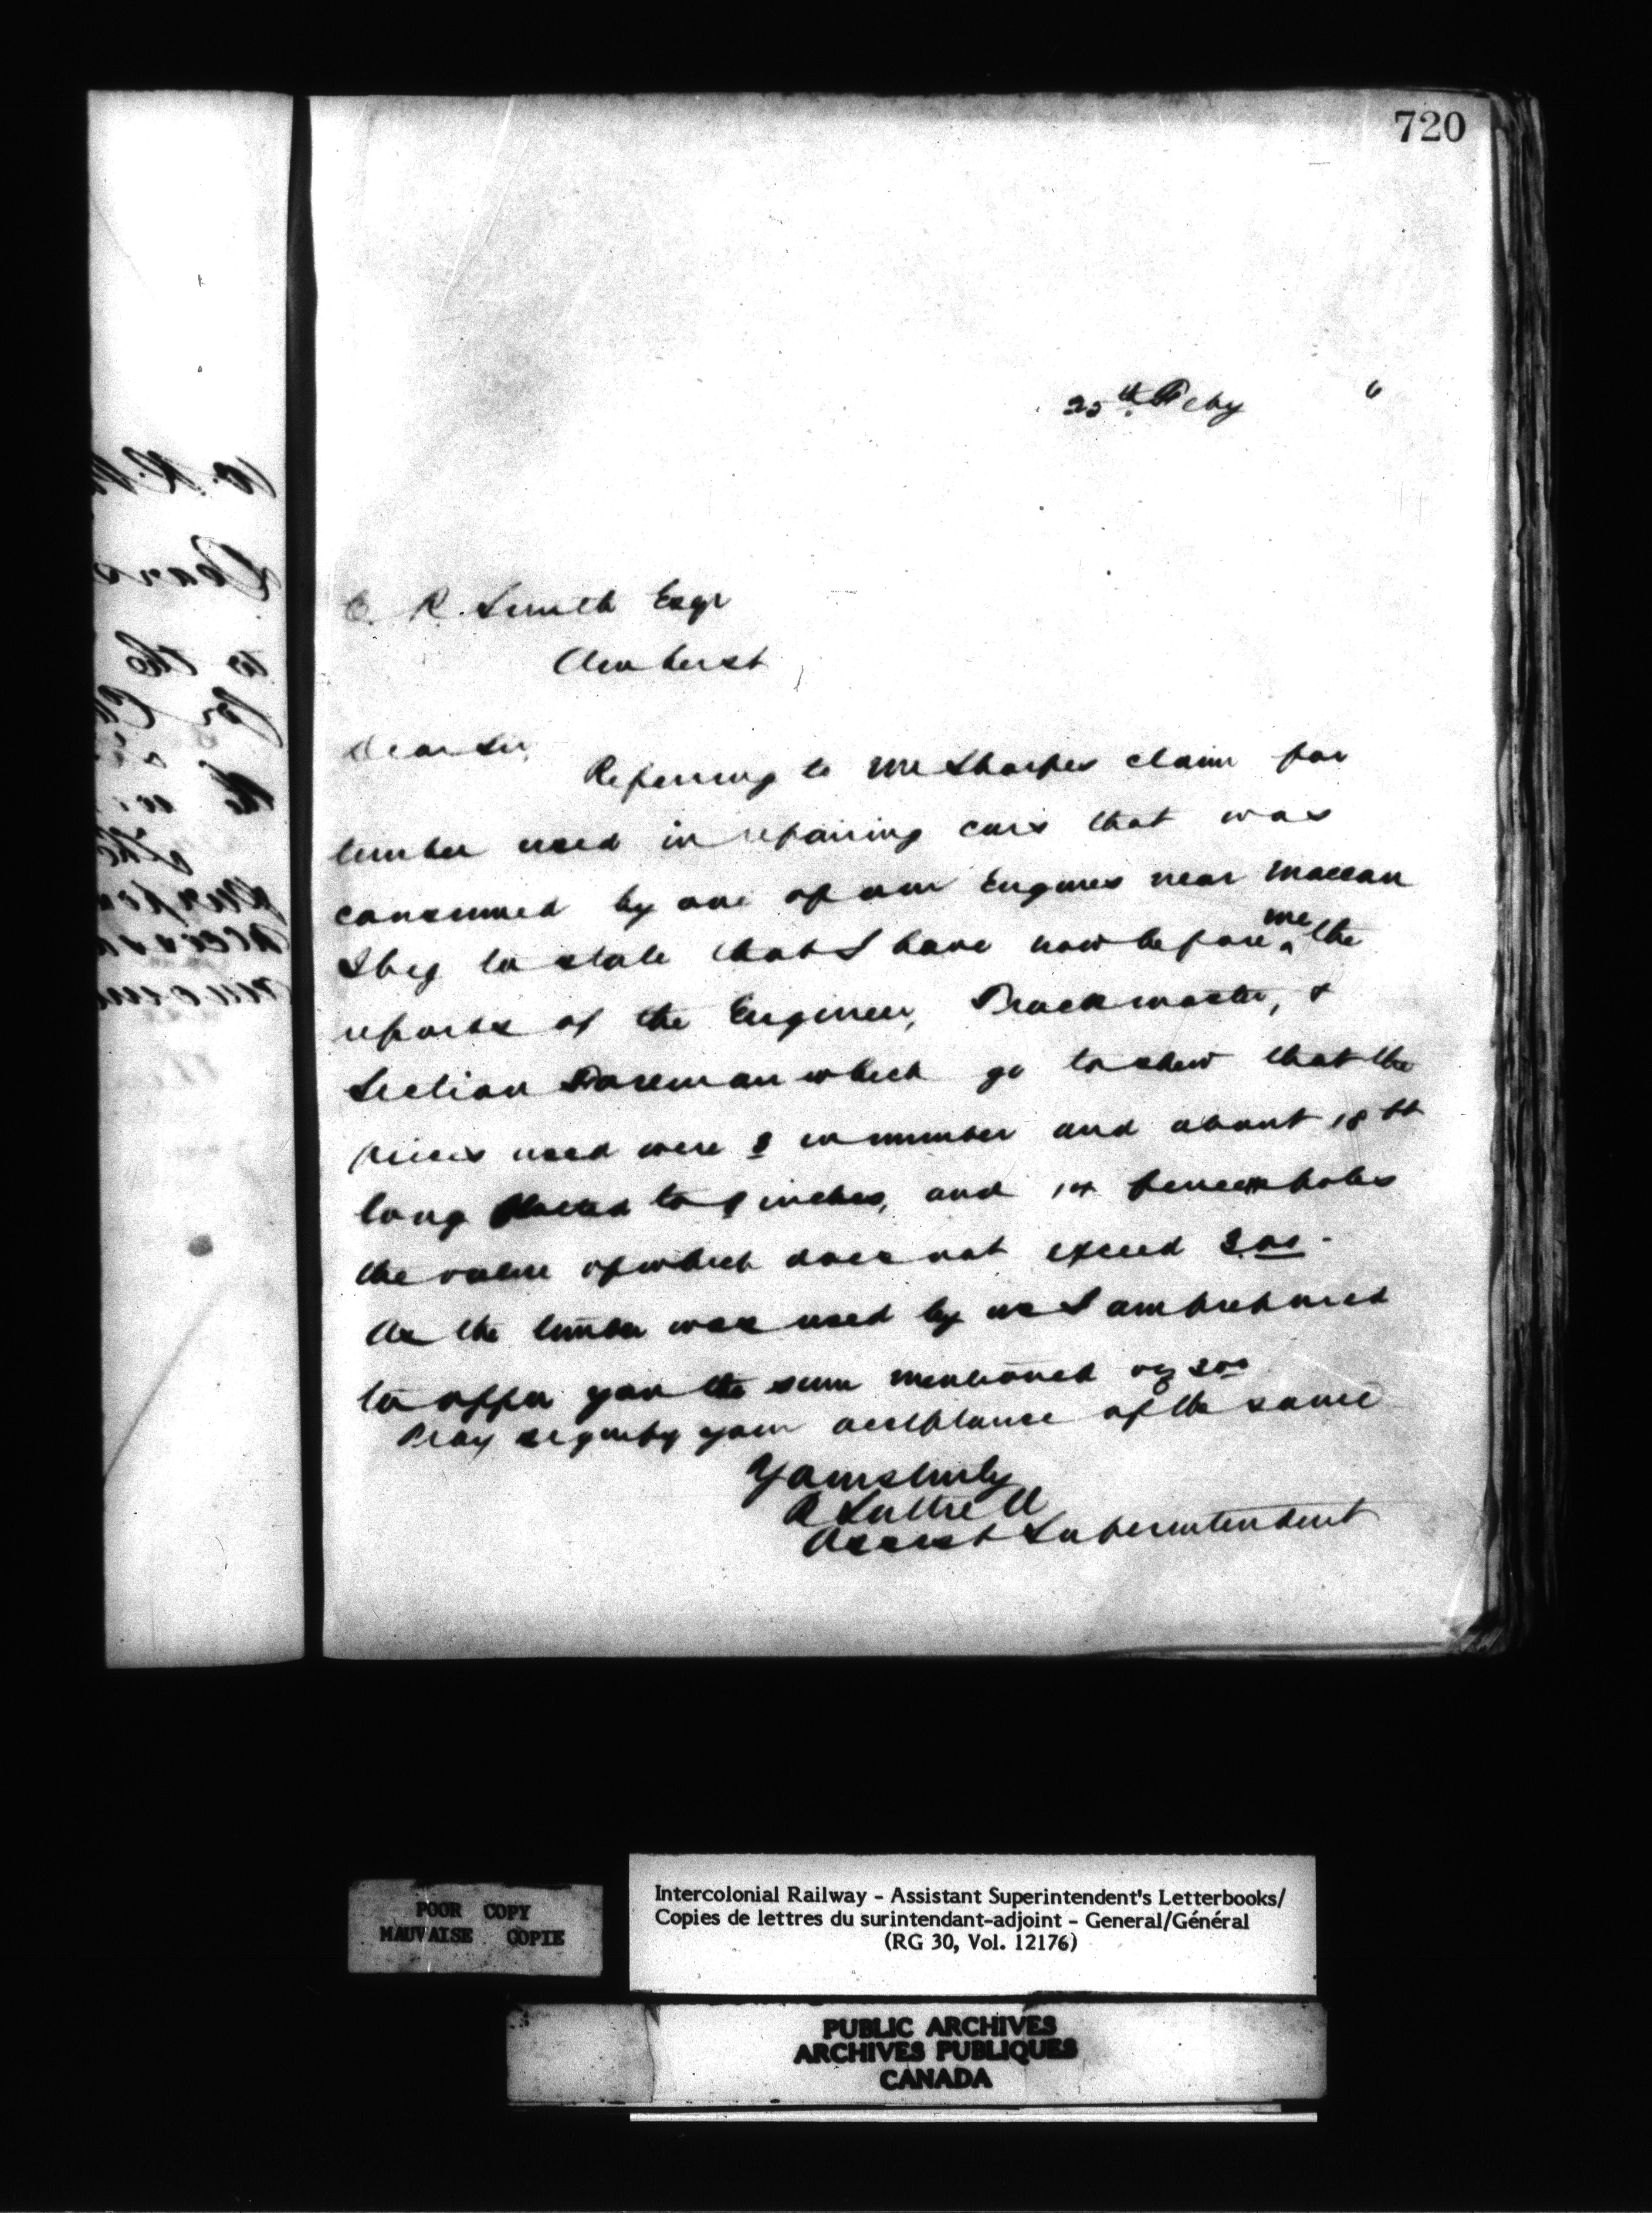 720
25th Feby "
C. R. Smith Esqr
Amherst
Dear Sir,
Referring to Mr Sharpes claim for
lumber used in repairing cars that was
consumed by one of our Engines near Maccan
I beg to state that I have now before me the
reports of the Engineer, Trackmaster, &
Section Foreman which go to shew that the
pieces used were 8 in number and about 18 ft
long to 8 inches, and 14 fence poles
the value of which does not exceed
As the lumber was used by us I am prepared
to offer you the sum mentioned viz
Pray signify your acceptance of the same
Yours truly
R Luttrell
Assist Superintendent
POOR COPY
MAUVAISE COPIE
Intercolonial Railway - Assistant Superintendent's Letterbooks/
Copies de lettres du surintendant-adjoint - General/Général
(RG 30, Vol. 12176)
PUBLIC ARCHIVES
ARCHIVES PUBLIQUES
CANADA